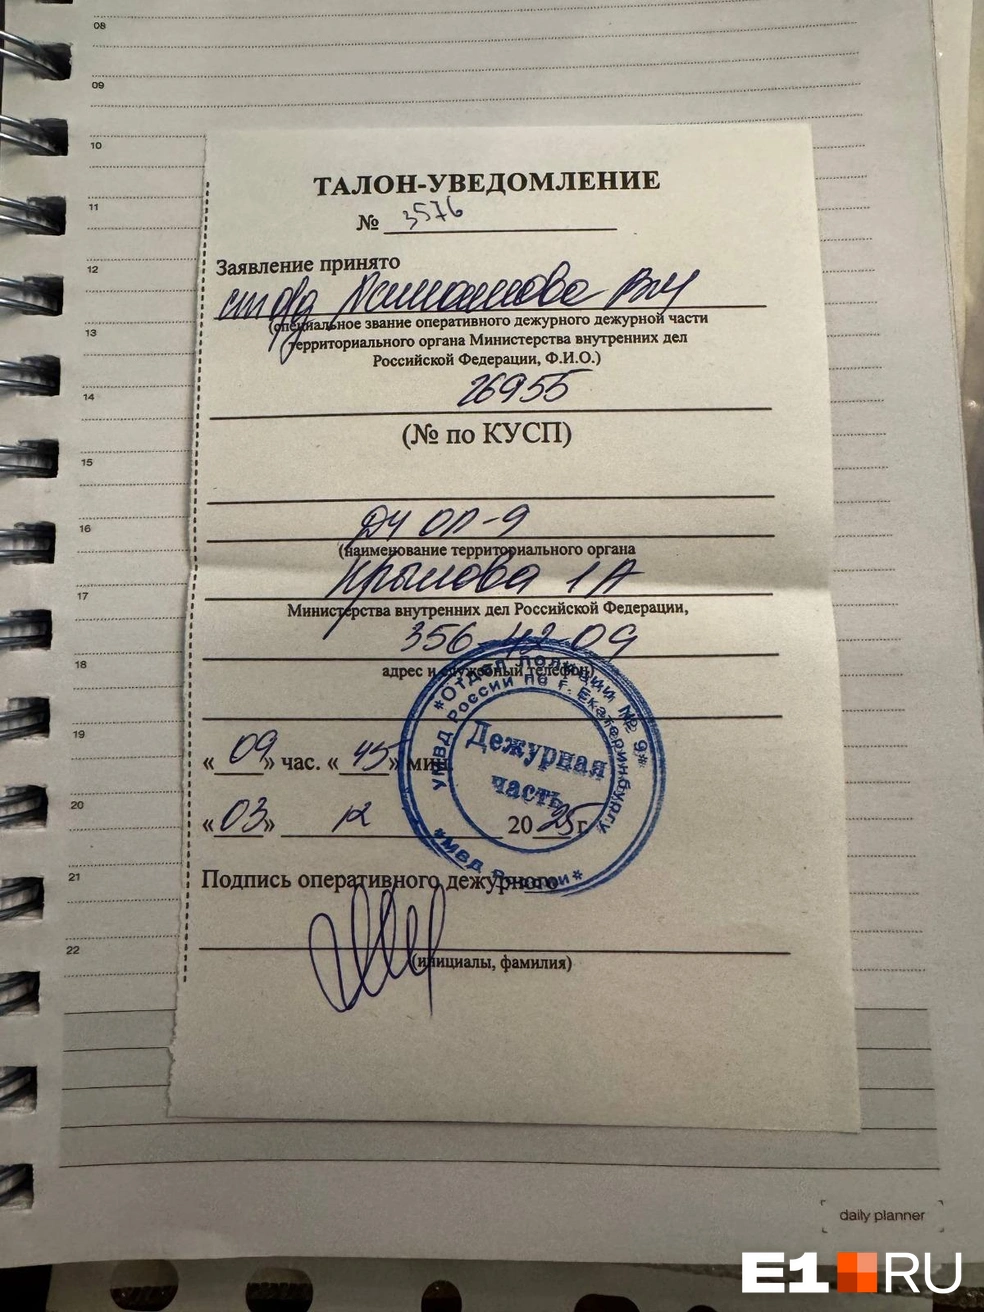 08
09
10
11
12
13
14
15
16
17
18
19
20
21
22
ТАЛОН-УВЕДОМЛЕНИЕ
№ 3576
Заявление принято
(специальное звание оперативного дежурного дежурной части
территориального органа Министерства внутренних дел
Российской Федерации, Ф.И.О.)
26955
(№ по КУСП)
ДЧ ОП-9
(наименование территориального органа
Крылова 1А
Министерства внутренних дел Российской Федерации,
356-42-09
адрес и служебный телефон)
«09» час. «45» мин.
«03» 12 2025 г.
Подпись оперативного дежурного
(инициалы, фамилия)
*Отдел полиции № 9*
УМВД России по г. Екатеринбургу
Дежурная
часть
*МВД России*
daily planner
E1 RU